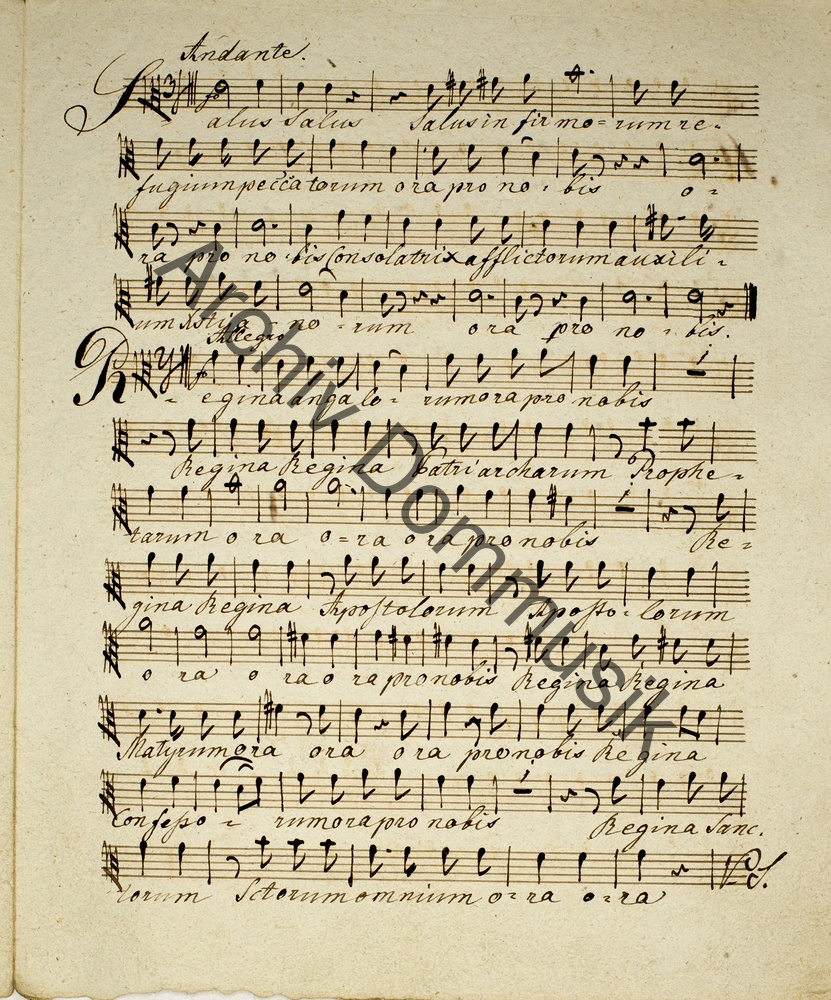 Andante.
Salus Salus Salus in firmo=rum re-
fugium peccatorum ora pro no - bis o=
ra pro no - bis Consolatrix afflictorum auxili -
um Xstia - no - rum ora pro no - bis.
Allegro
R - egina angelo - rum ora pro nobis
Regina Regina Patriarcharum Prophe=
tarum o ra o=ra o ra pro nobis Re=
gina Regina Apostolorum Aposto=lorum
o ra o ra o ra pro nobis Regina Regina
Matyrum ora ora o ra pro nobis Regina
Confesso - rum ora pro nobis Regina Sanc.
torum Sctorum omnium o=ra o=ra V.S.
Archiv Dommusik